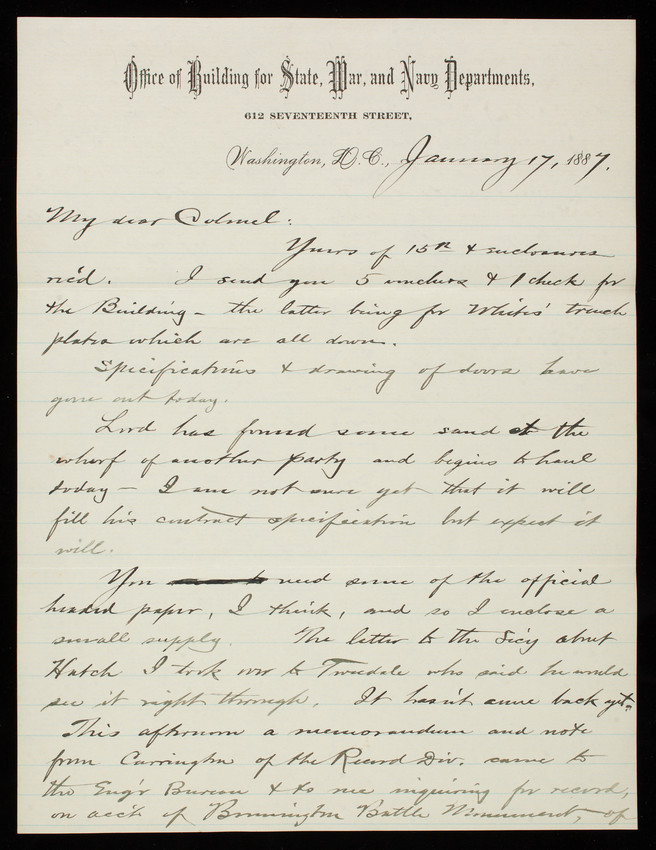 Office of Building for State, War, and Navy Departments,
612 SEVENTEENTH STREET,
Washington, D.C., January 17, 1887.
My dear Colonel:
Yours of 15th & enclosures
rec'd. I send you 5 vouchers & 1 check for
the Building – the latter being for Whites' truck
plates which are all down.
Specifications & drawing of doors have
gone out today.
Lord has found some sand at the
wharf of another party and begins to haul
today – I am not sure yet that it will
fill his contract specification but expect it
will.
You need some of the official
headed paper, I think, and so I enclose a
small supply. The letter to the Sec'y about
Hatch I took over to Tweedale who said he would
see it right through. It hasn't come back yet.
This afternoon a memorandum and note
from Carrington of the Record Div. came to
the Eng'r Bureau & to me inquiring for record,
on acc't of Bennington Battle Monument, of